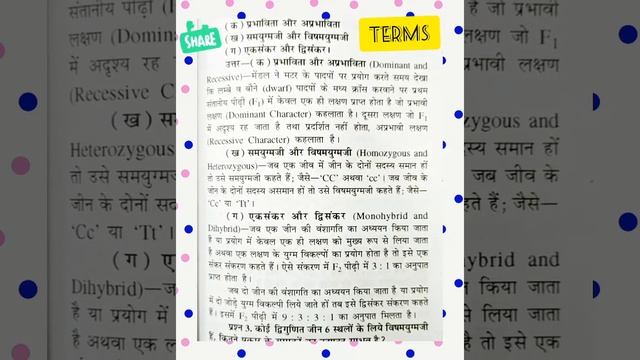 SHARE
TERMS
(क) प्रभाविता और अप्रभाविता
(ख) समयुग्मजी और विषमयुग्मजी
(ग) एकसंकर और द्विसंकर।
उत्तर—(क) प्रभाविता और अप्रभाविता (Dominant and
Recessive)—मेंडल ने मटर के पादपों पर प्रयोग करते समय देखा
कि लम्बे व बौने (dwarf) पादपों के मध्य क्रॉस करवाने पर प्रथम
संतानीय पीढ़ी (F1) में केवल एक ही लक्षण प्राप्त होता है जो प्रभावी
लक्षण (Dominant Character) कहलाता है। दूसरा लक्षण जो F1
में अदृश्य रह जाता है तथा प्रदर्शित नहीं होता, अप्रभावी लक्षण
(Recessive Character) कहलाता है।
(ख) समयुग्मजी और विषमयुग्मजी (Homozygous and
Heterozygous)—जब एक जीव में जीन के दोनों सदस्य समान हों
तो उसे समयुग्मजी कहते हैं; जैसे—‘CC’ अथवा ‘cc’। जब जीव के
जीन के दोनों सदस्य असमान हों तो उसे विषमयुग्मजी कहते हैं; जैसे—
‘Cc’ या ‘Tt’।
(ग) एकसंकर और द्विसंकर (Monohybrid and
Dihybrid)—जब एक जीन की वंशागति का अध्ययन किया जाता
है या प्रयोग में केवल एक ही लक्षण को मुख्य रूप से लिया जाता
है अथवा एक लक्षण के युग्म विकल्पों का प्रयोग होता है तो इसे एक
संकर संकरण कहते हैं। ऐसे संकरण में F2 पीढ़ी में 3 : 1 का अनुपात
प्राप्त होता है।
जब दो जीन की वंशागति का अध्ययन किया जाता है या प्रयोग
में दो जोड़े युग्म विकल्पी लिये जाते हों तब इसे द्विसंकर संकरण कहते
हैं। इसमें F2 पीढ़ी में 9 : 3 : 3 : 1 का अनुपात मिलता है।
प्रश्न 3. कोई द्विगुणित जीन 6 स्थलों के लिये विषमयुग्मजी